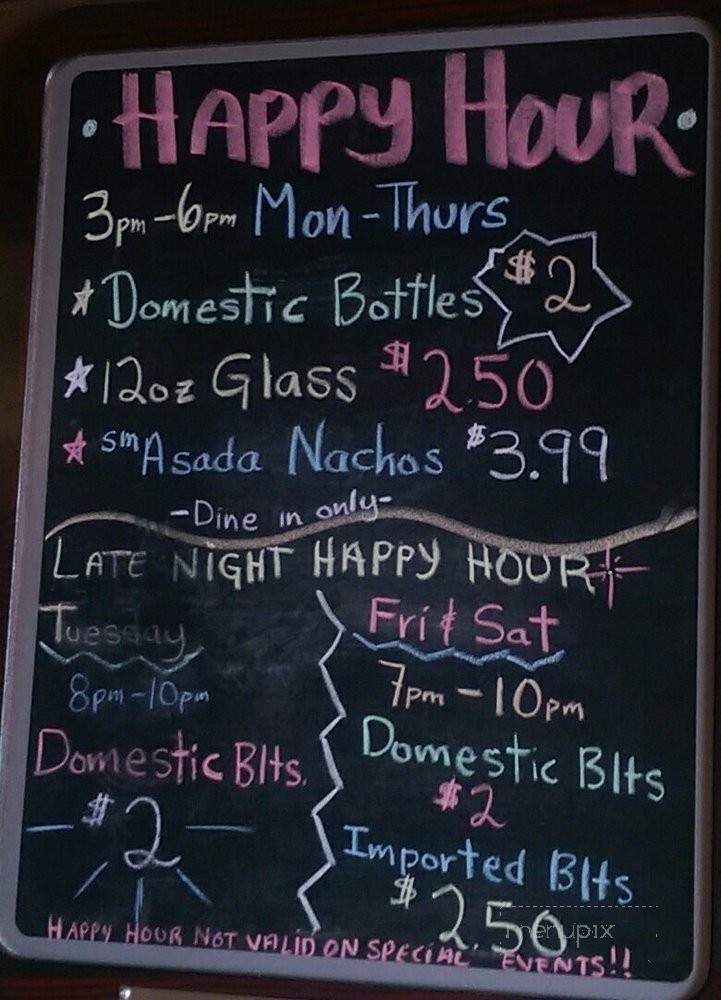 HAPPY HOUR
3pm-6pm Mon-Thurs
Domestic Bottles $2
12oz Glass $2.50
sm Asada Nachos $3.99
-Dine in only-
LATE NIGHT HAPPY HOUR
Tuesday
8pm-10pm
Domestic Blts.
$2
Fri & Sat
7pm-10pm
Domestic Blts
$2
Imported Blts
$2.50
menupix
HAPPY HOUR NOT VALID ON SPECIAL EVENTS!!